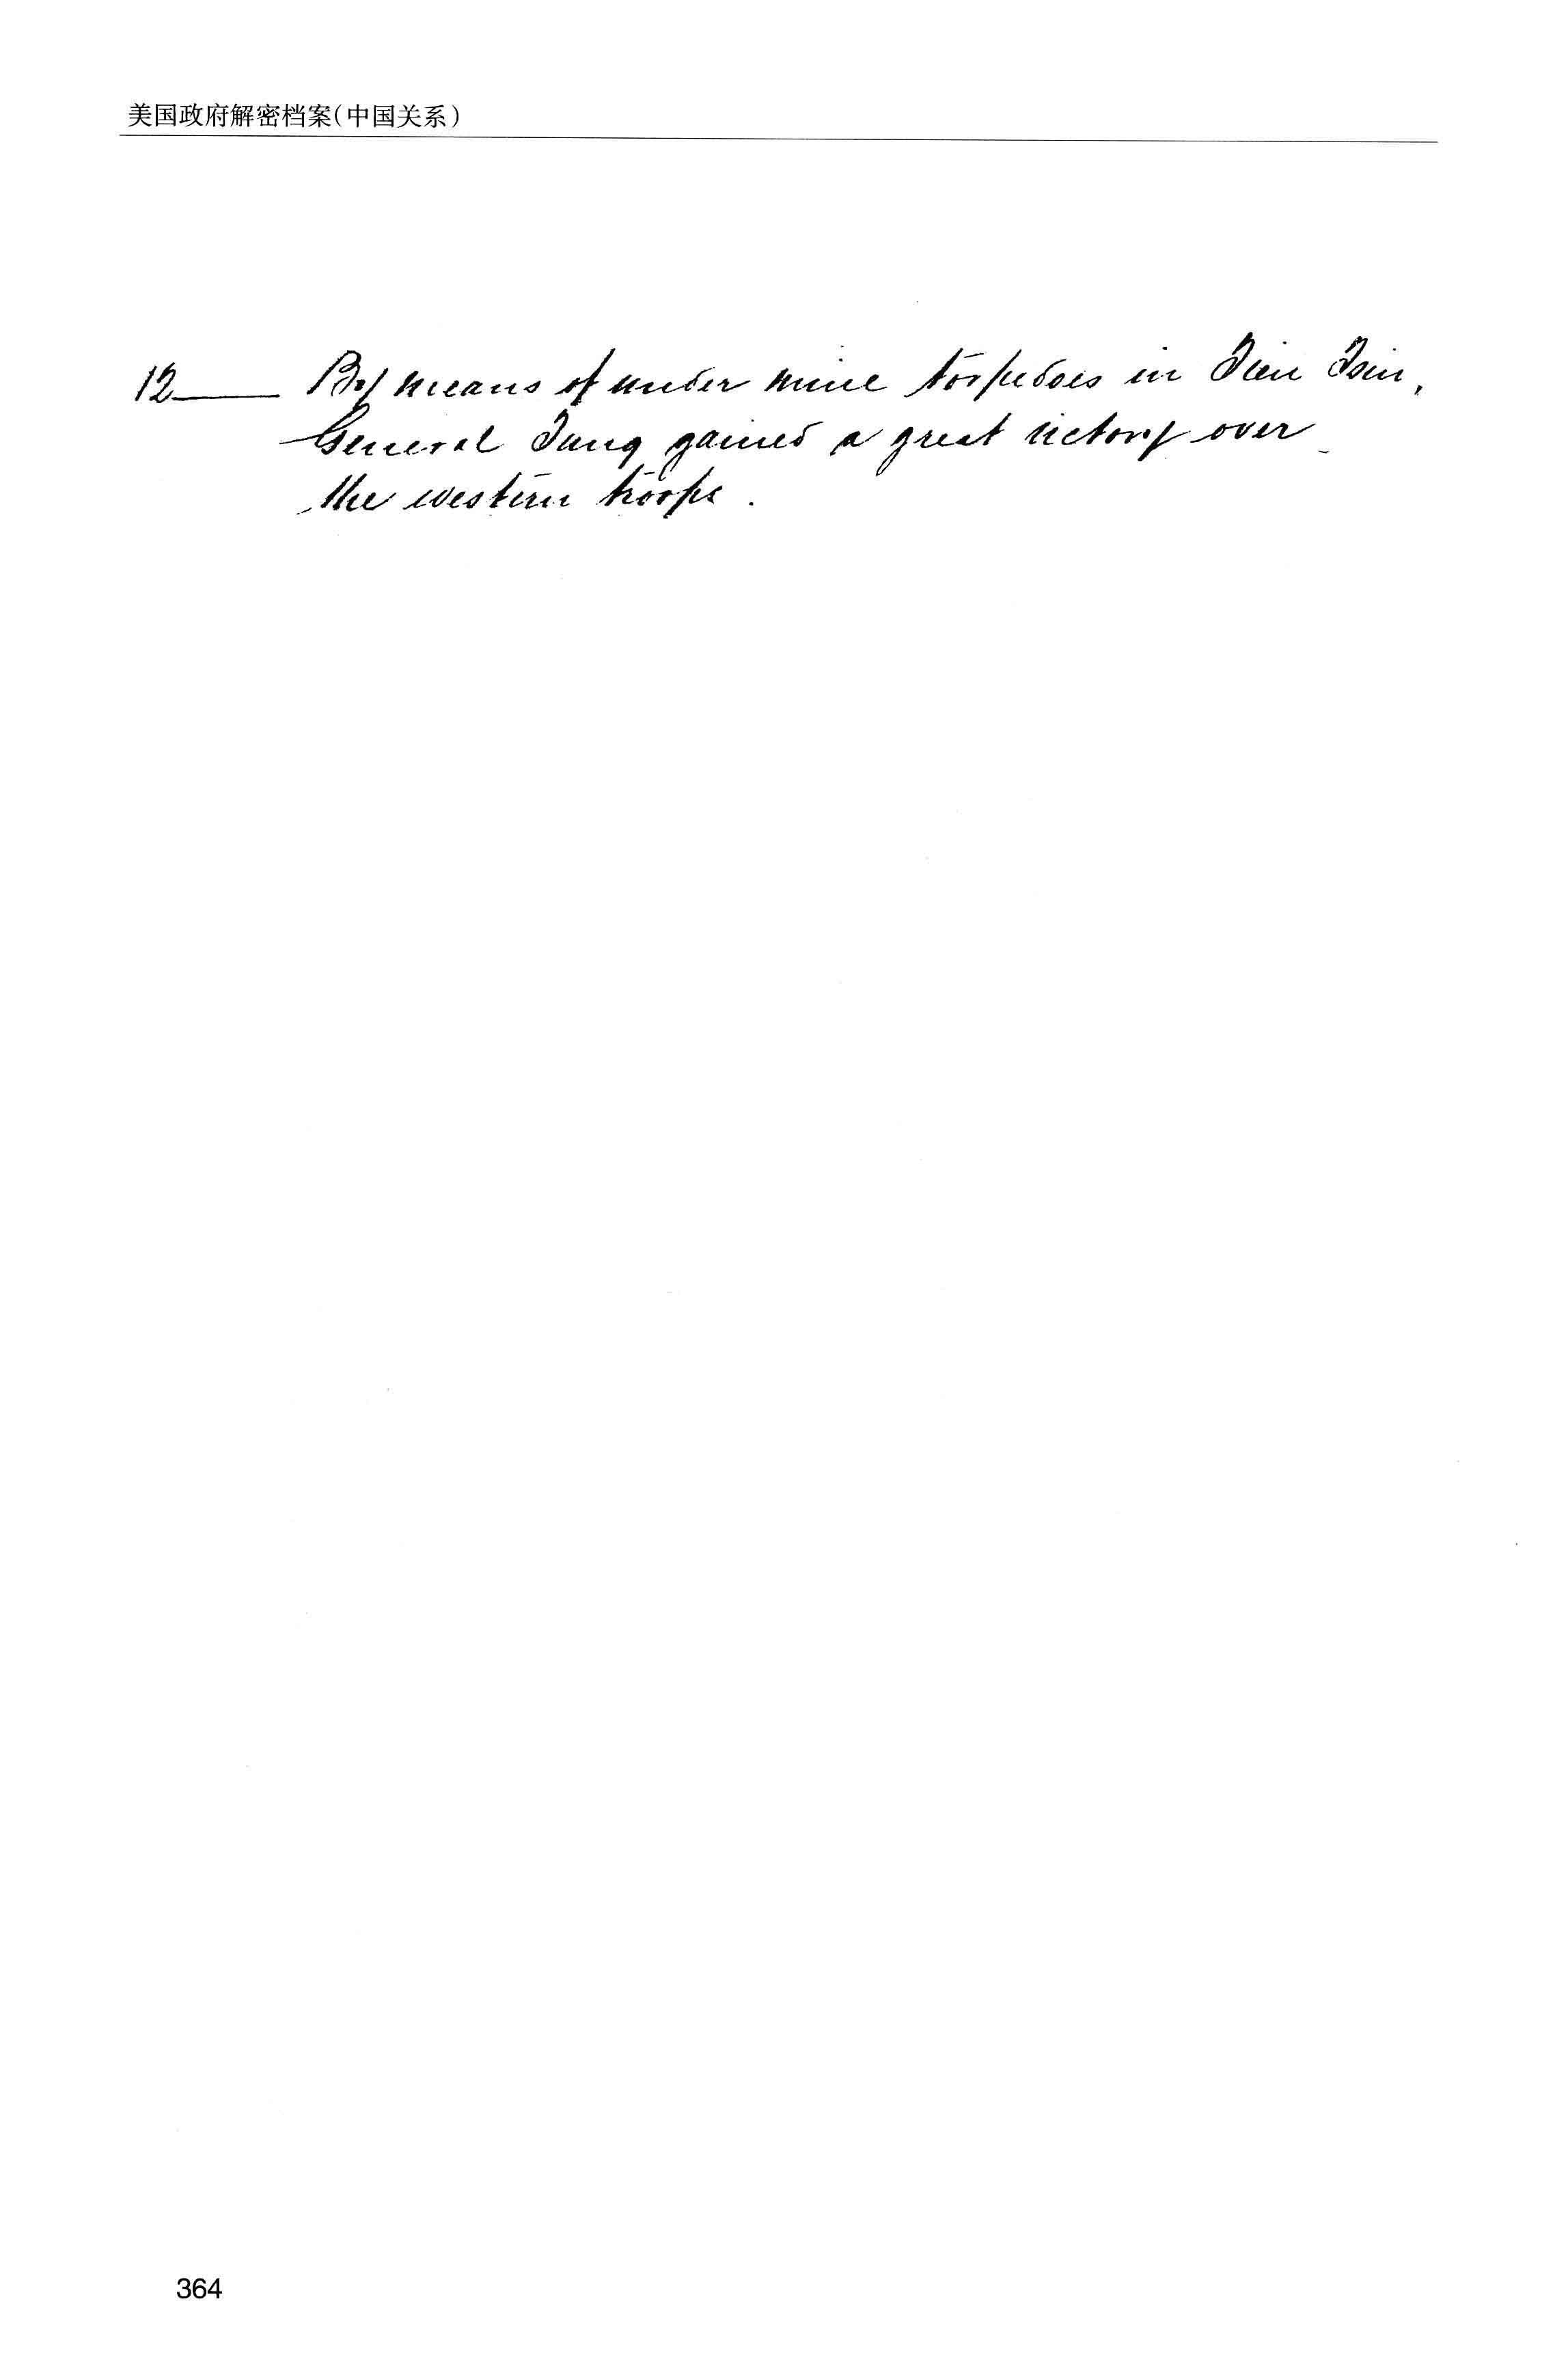 美国政府解密档案(中国关系)
12 — By means of under mine torpedoes in Tien Tsin,
General Tung gained a great victory over
the western troops.
364